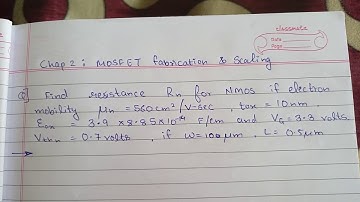 classmate
Date
Page
Chap 2 : MOSFET fabrication & Scaling
Q) Find resistance Rn for NMOS if electron
mobility μn = 560 cm²/V-sec , tox = 10nm ,
Eox = 3.9 × 8.85 × 10⁻¹⁴ F/cm and VG = 3.3 volts
Vthn = 0.7 volts , if W = 100 μm , L = 0.5 μm
→